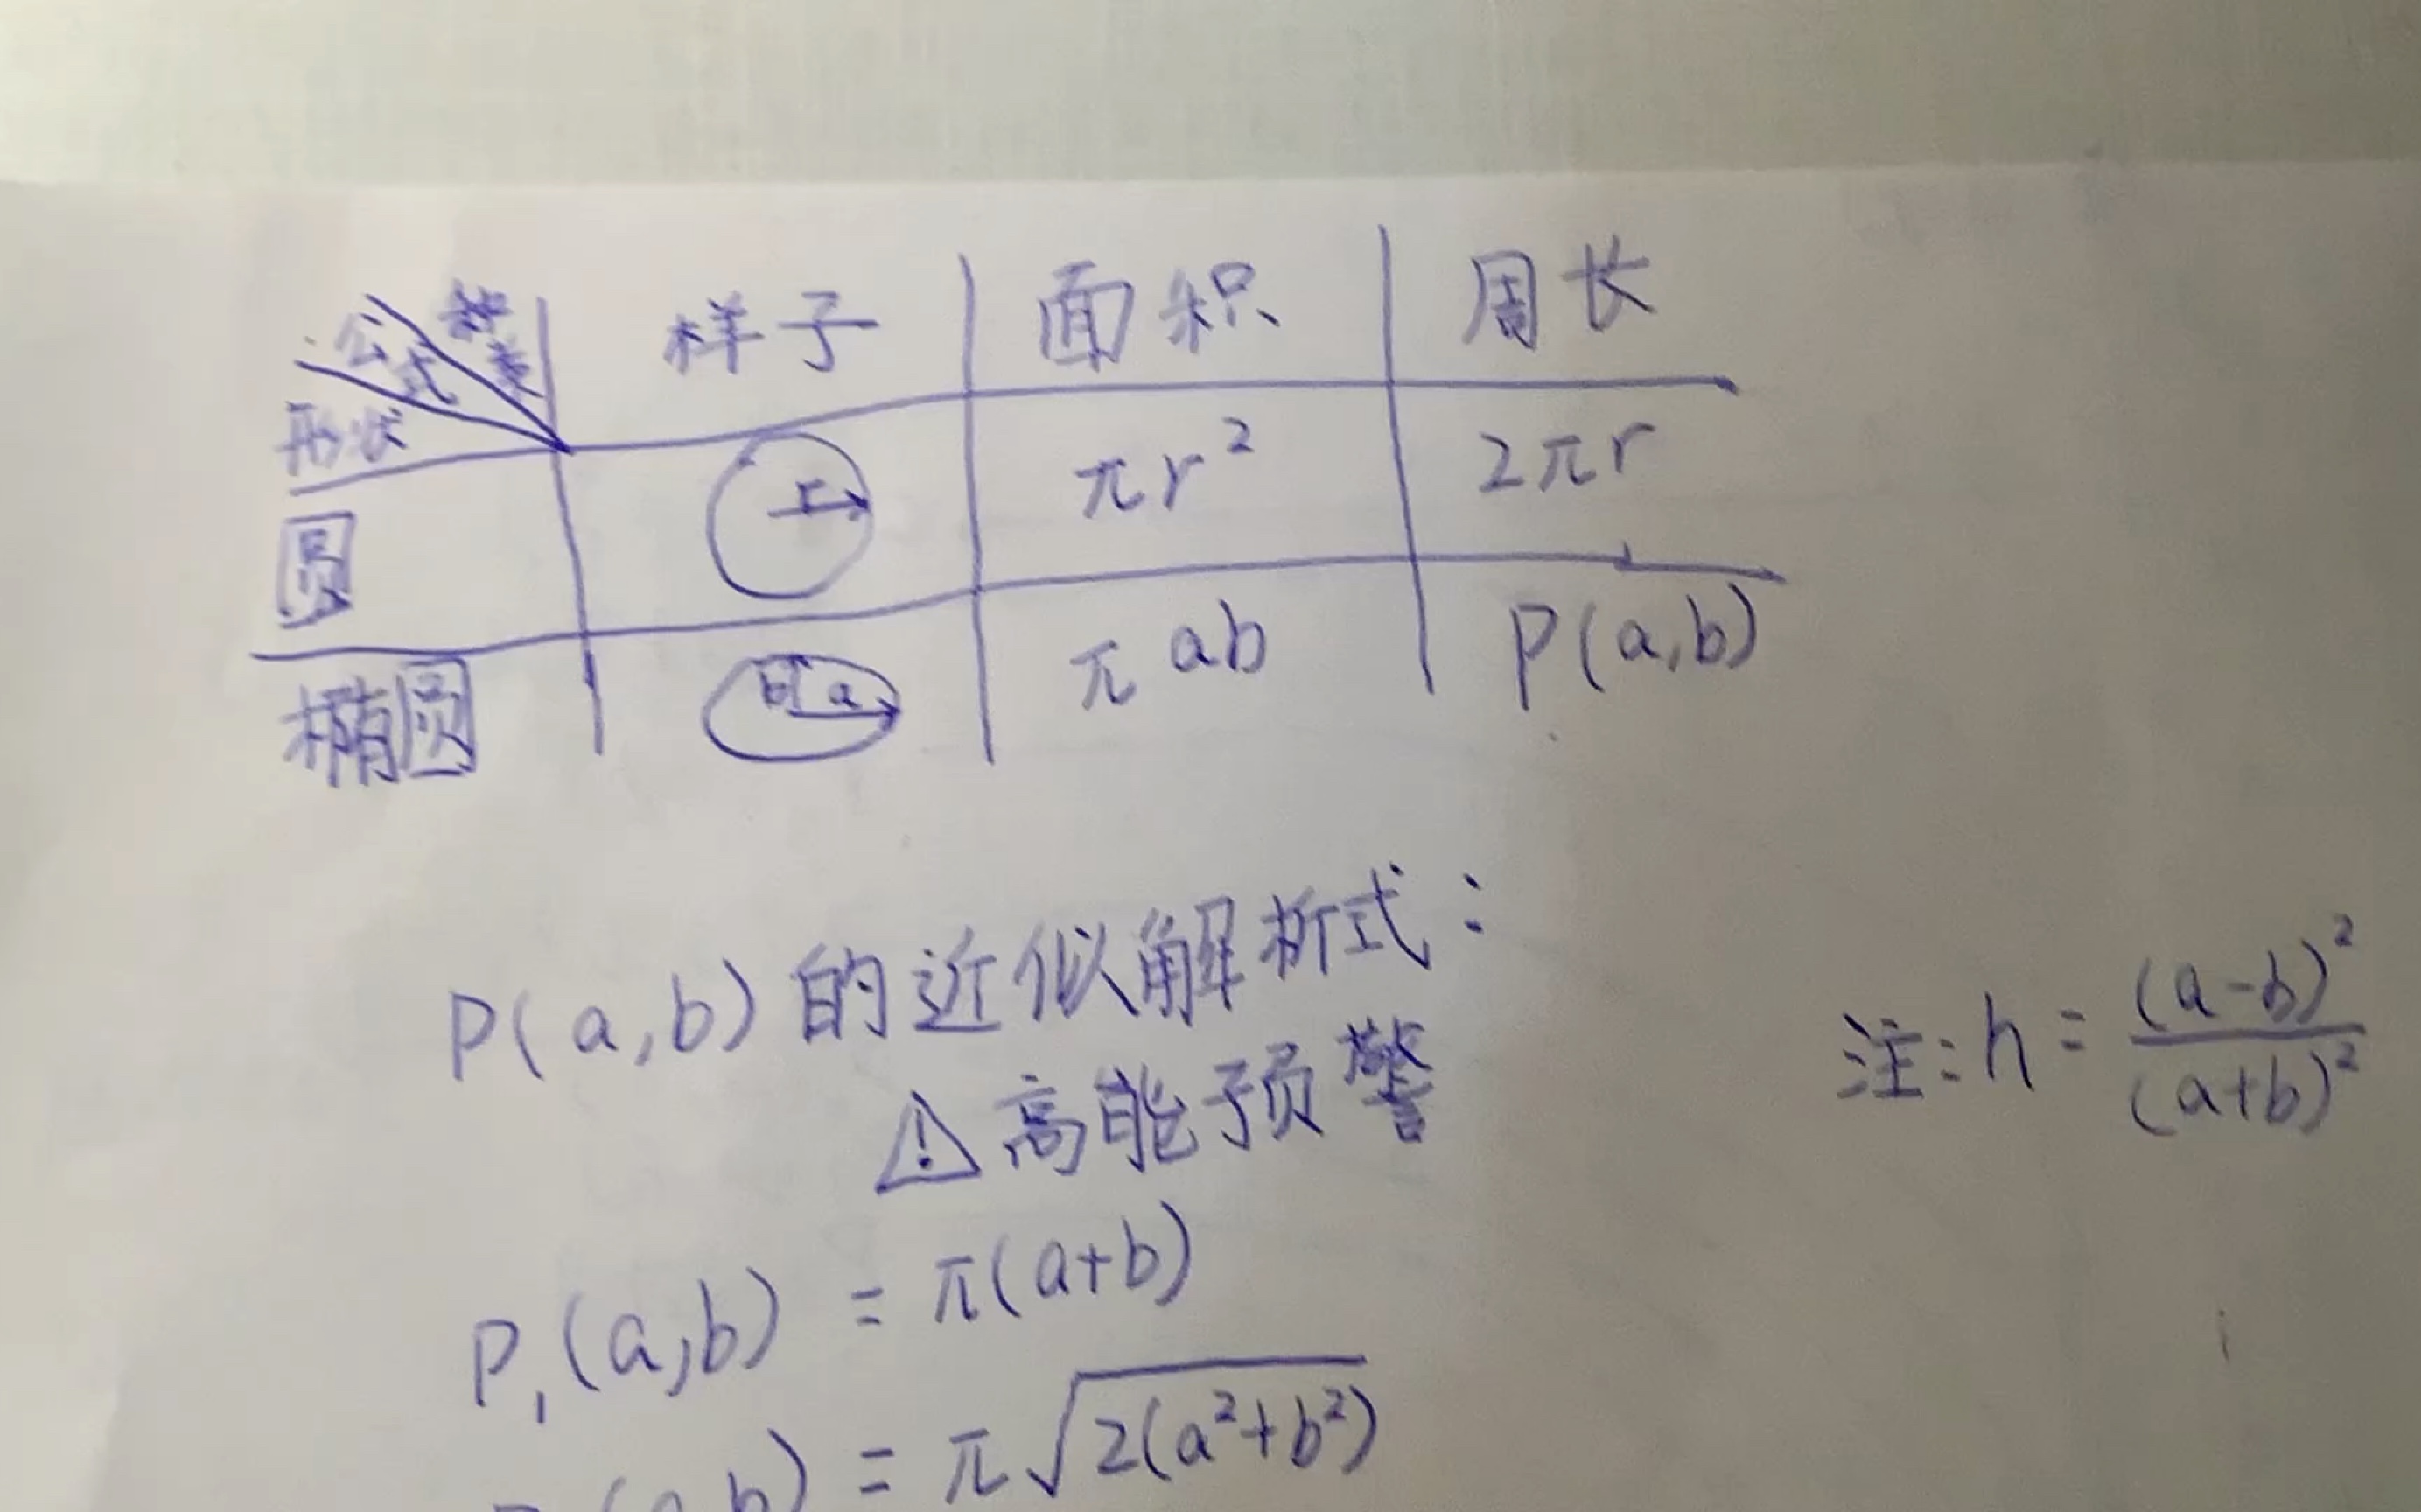 种类 样子 面积 周长
公式
形状
圆 r πr² 2πr
椭圆 b a πab P(a,b)
P(a,b)的近似解析式：
⚠高能预警
注:h=(a-b)²/(a+b)²
P₁(a,b)=π(a+b)
(a,b)=π√2(a²+b²)